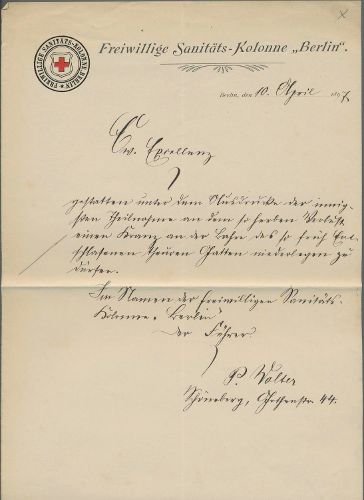 Freiwillige Sanitäts-Kolonne „Berlin“.
FREIWILLIGE SANITÄTS-KOLONNE BERLIN
Berlin, den 10. April 1897
Ew. Excellenz
gestatten unter dem Ausdrucke der innig-
sten Theilnahme an dem so herben Verluste
einen Kranz an der Bahre des so früh Ent-
schlafenen theuren Gatten niederlegen zu
dürfen.
Im Namen der freiwilligen Sanitäts-
Kolonne „Berlin“
der Führer
P. Walter
Schöneberg, 44.